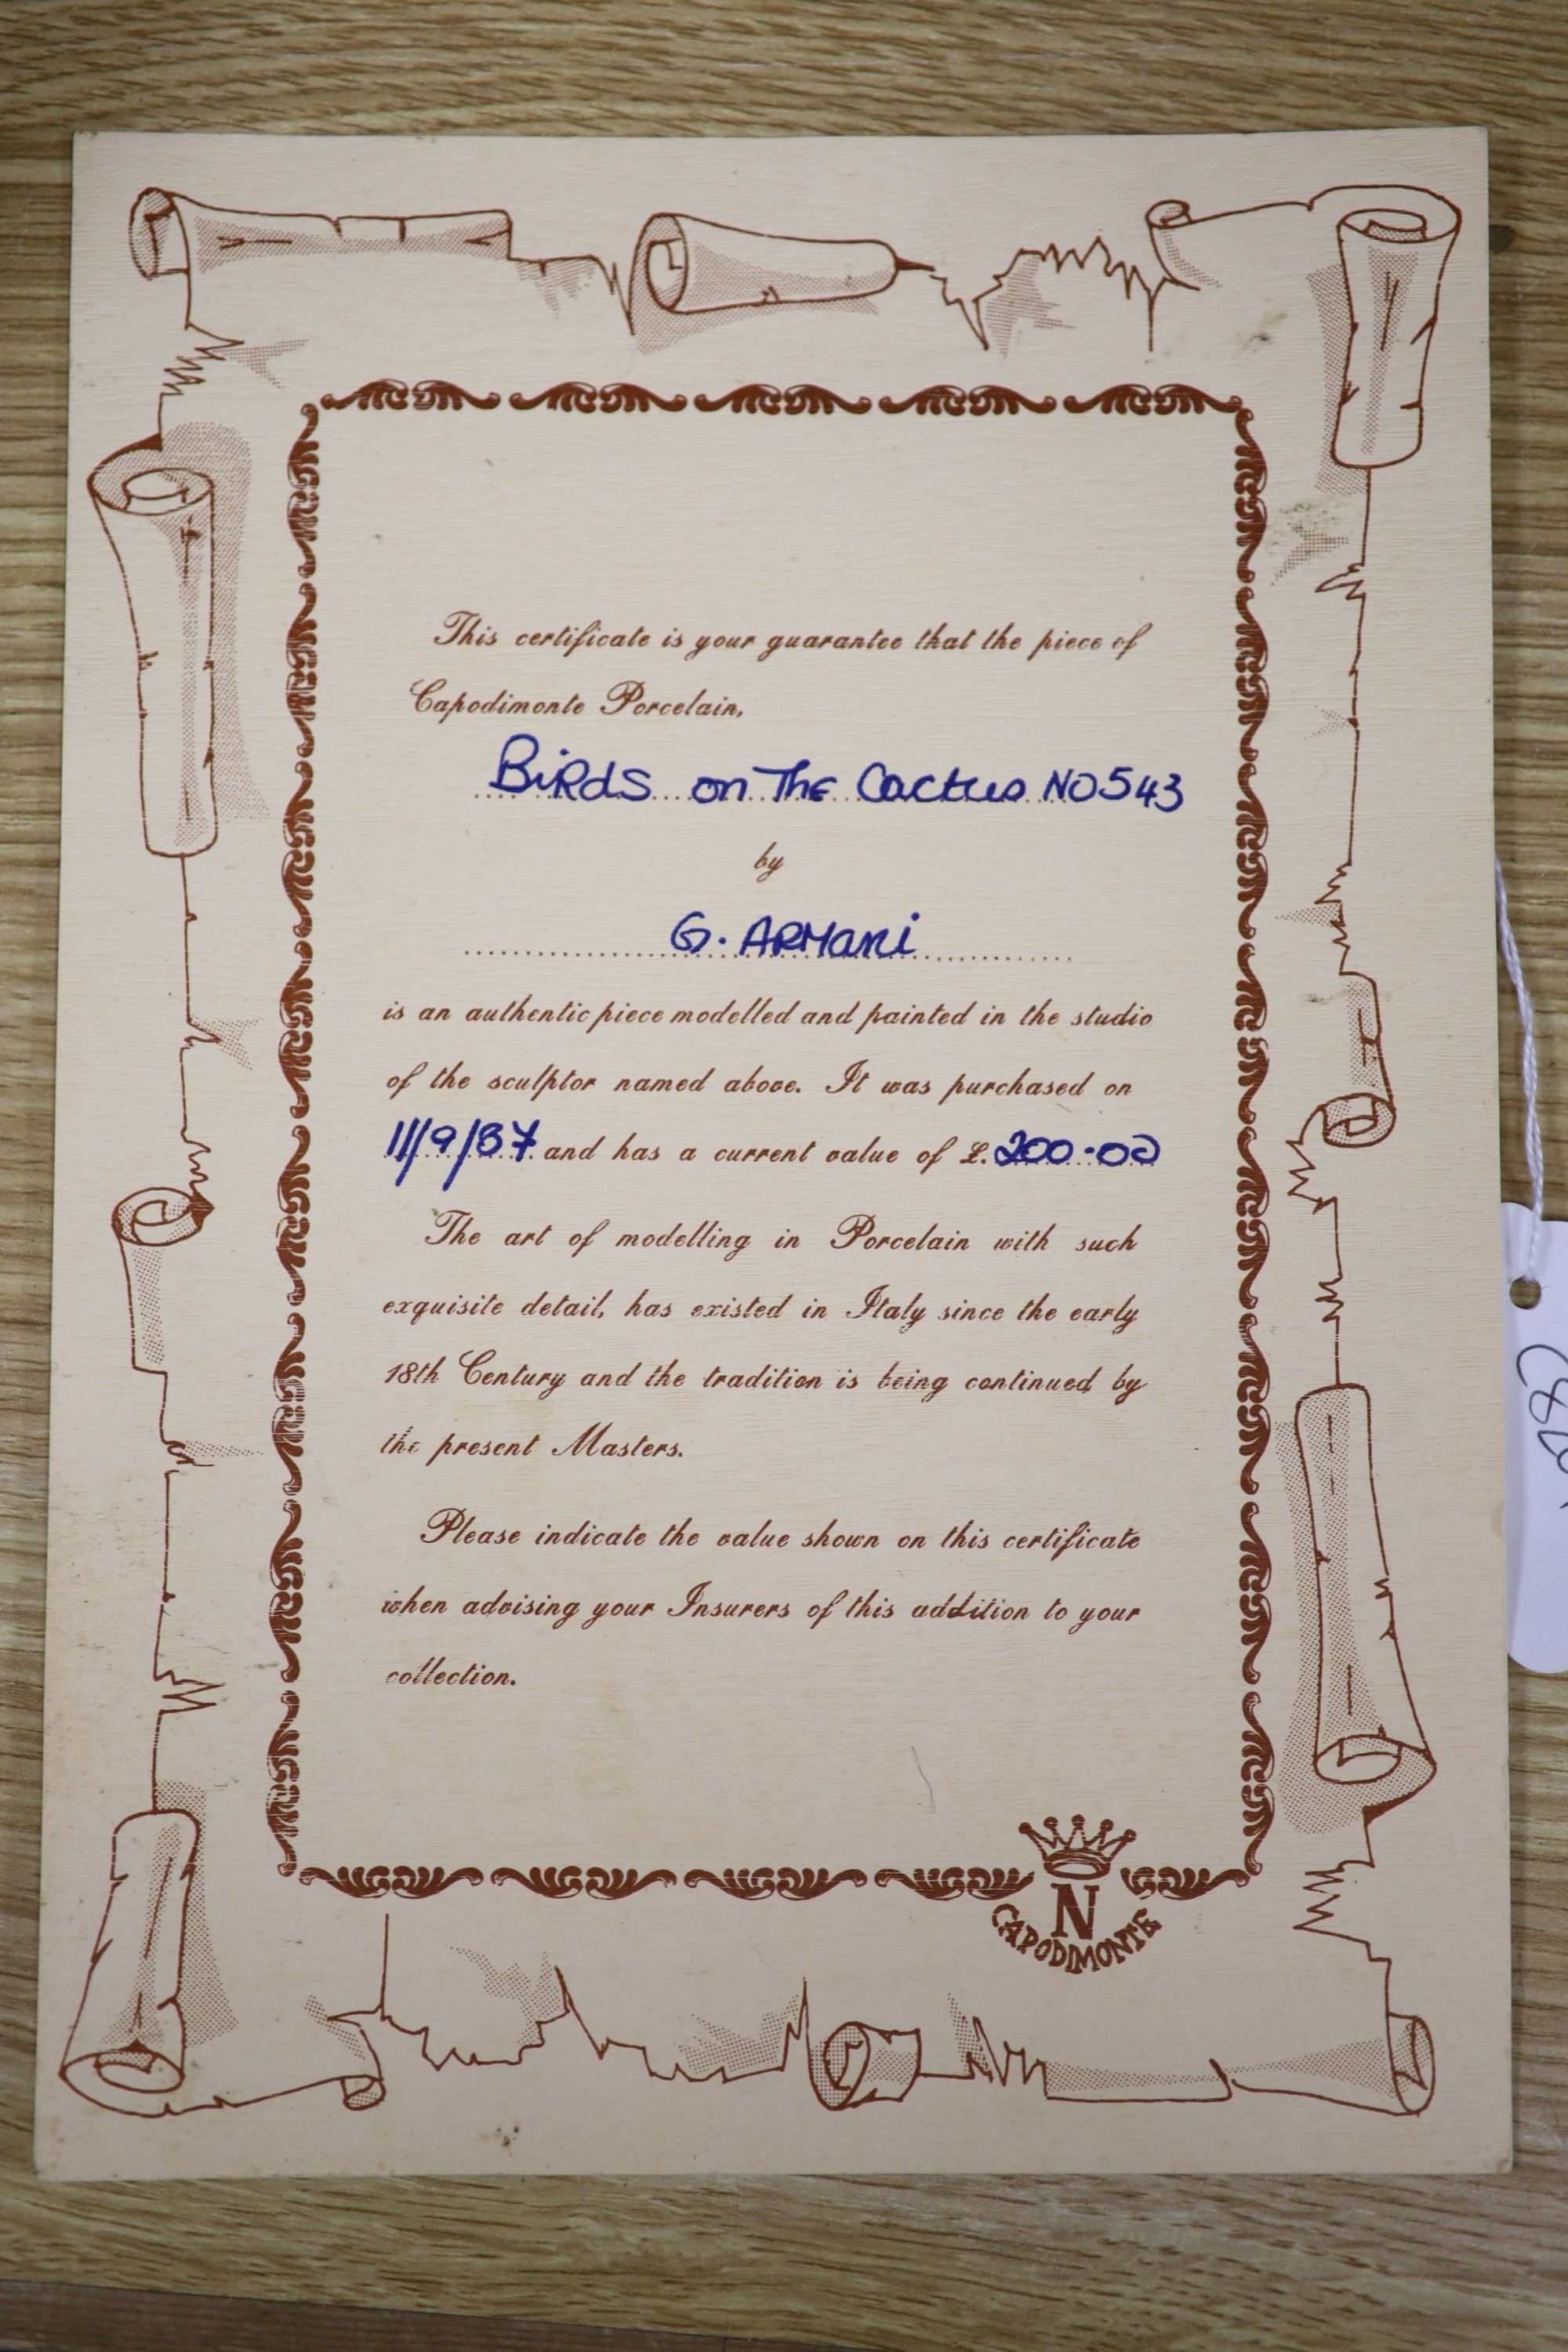 This certificate is your guarantee that the piece of
Capodimonte Porcelain,
BiRdS on The Cactus NO 543
by
G. ARMani
is an authentic piece modelled and painted in the studio
of the sculptor named above. It was purchased on
11/9/87 and has a current value of £. 200-00
The art of modelling in Porcelain with such
exquisite detail, has existed in Italy since the early
18th Century and the tradition is being continued by
the present Masters.
Please indicate the value shown on this certificate
when advising your Insurers of this addition to your
collection.
N
CAPODIMONTE